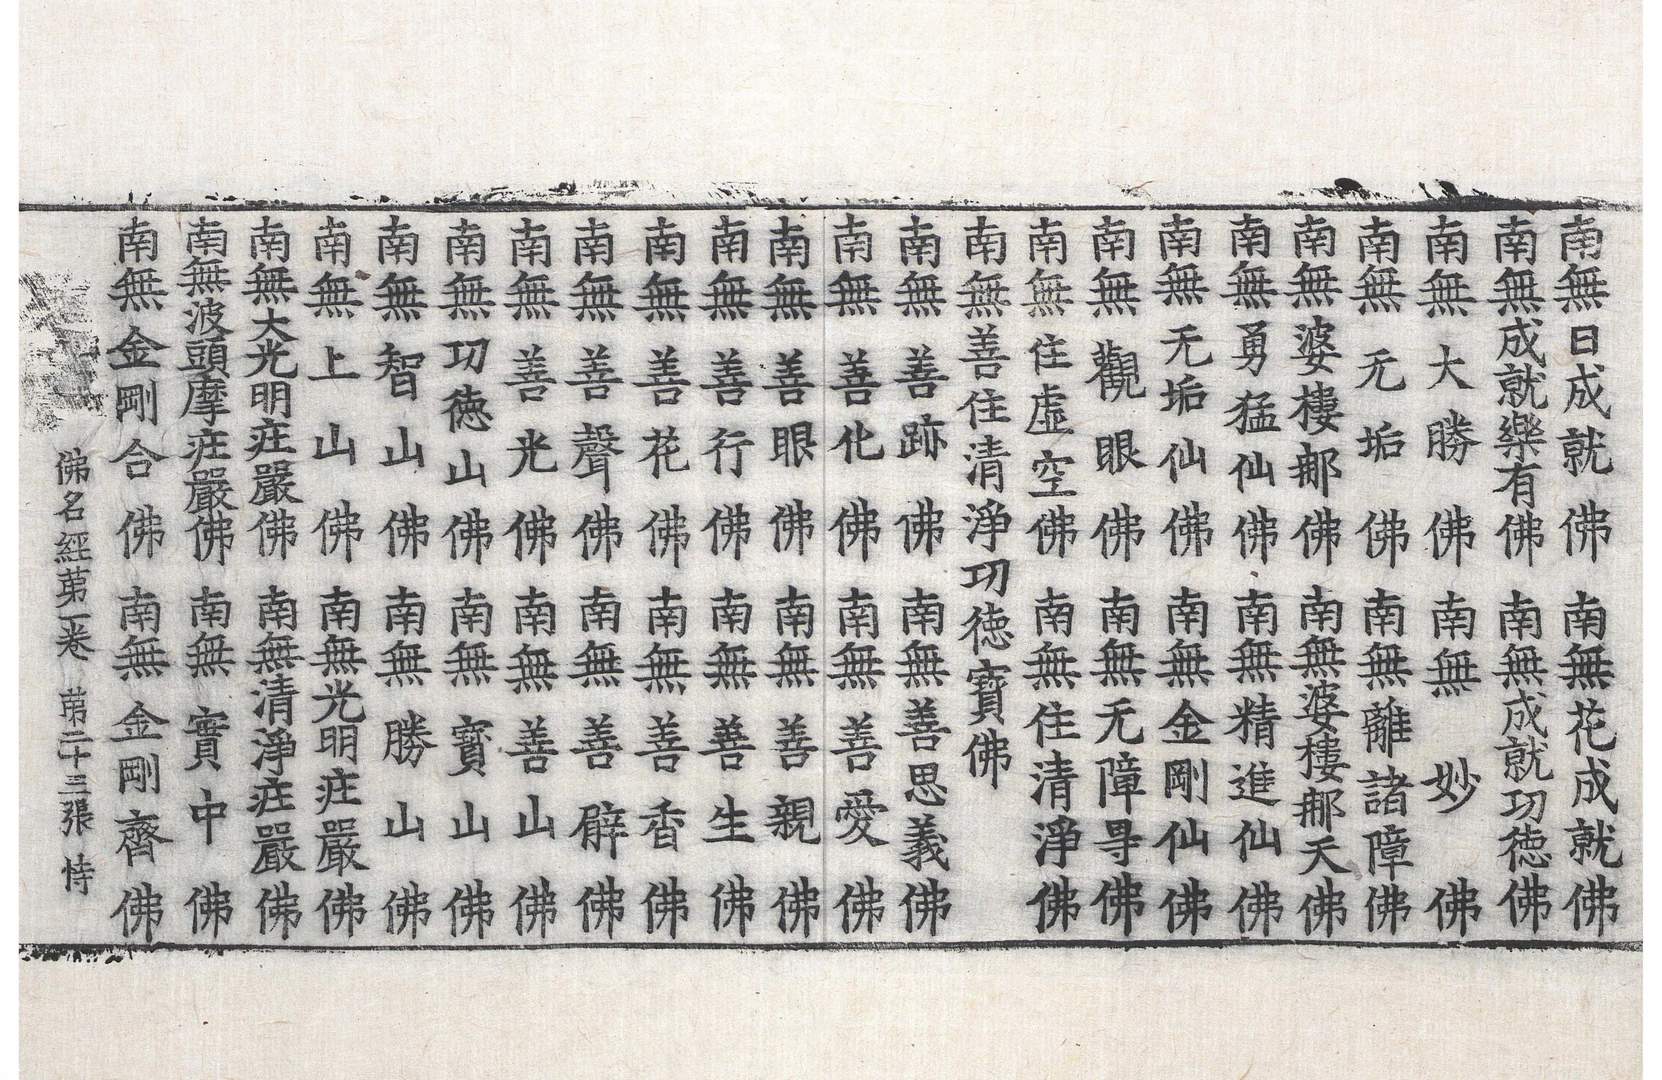 南無日成就佛 南無花成就佛
南無成就樂有佛 南無成就功德佛
南無大勝佛 南無妙佛
南無无垢佛 南無離諸障佛
南無婆樓那佛 南無婆樓那天佛
南無勇猛仙佛 南無精進仙佛
南無无垢仙佛 南無金剛仙佛
南無觀眼佛 南無无障㝵佛
南無住虛空佛 南無住清淨佛
南無善住清淨功德寶佛
南無善跡佛 南無善思義佛
南無善化佛 南無善愛佛
南無善眼佛 南無善親佛
南無善行佛 南無善生佛
南無善花佛 南無善香佛
南無善聲佛 南無善臂佛
南無善光佛 南無善山佛
南無功德山佛 南無寶山佛
南無智山佛 南無勝山佛
南無上山佛 南無光明庄嚴佛
南無大光明庄嚴佛 南無清淨庄嚴佛
南無波頭摩庄嚴佛 南無實中佛
南無金剛合佛 南無金剛齊佛
佛名經第一卷 第二十三張 恃